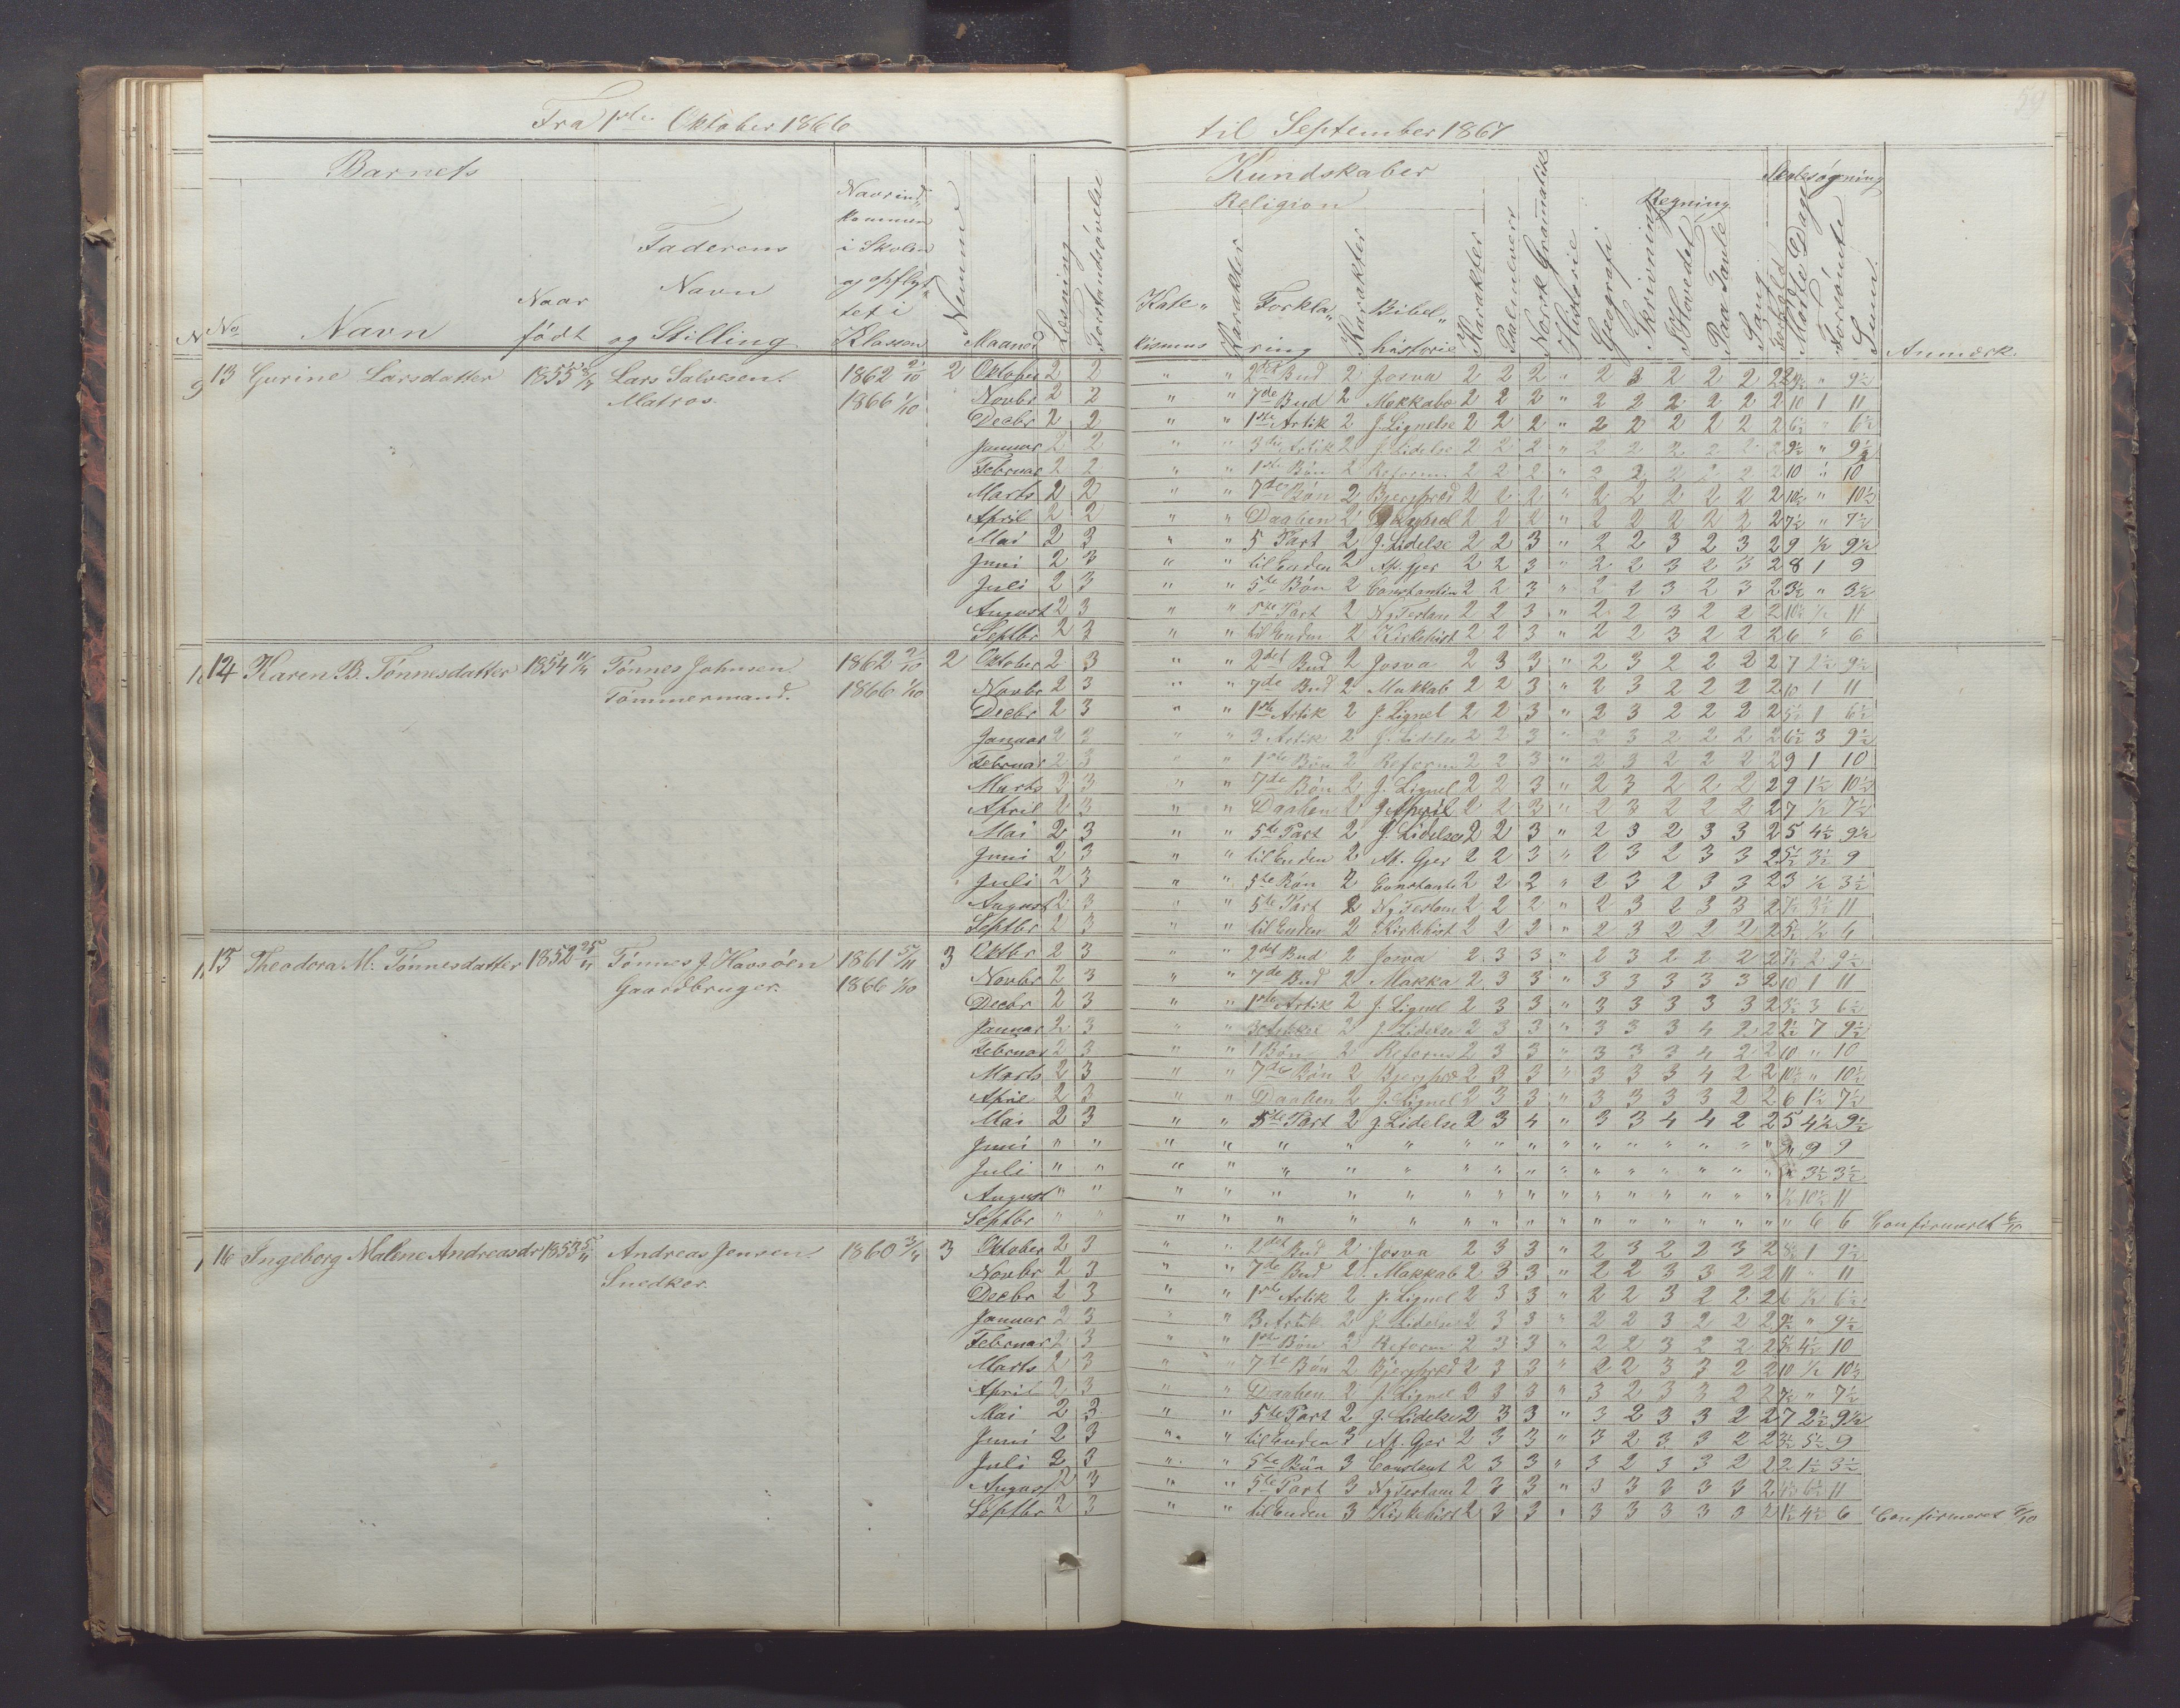 Fra 1ste Oktober 1866 til September 1867
50
Barnets
Kundskaber
Religion
Regning
Skolesøgning
No
Navn
Naar født
Faderens Navn og Stilling
Naar ind„kommen i Skolen og opflyt„tet i Klassen
Nemme
Maaned
Læsning
Forstandsøvelse
Kate„kismus
Karakter
Forkla„ring
Karakter
Bibel„historie
Karakter
Psalmevers
Norsk Gramatik
Historie
Geografi
Skrivning
I Hovedet
Paa Tavle
Sang
Forhold
Mødte Dage
Forsømte
Sum
Anmærk.
13 Gurine Larsdatter 1855 Lars Salvesen. 1862 2/10 2 Oktober 2 2 " " 2det Bud 2 Josva 2 2 2 " 2 3 2 2 2 2 9½ " 9½
Matros. 1866 1/10 Novbr 2 2 " " 7de Bud 2 Makkabæ 2 2 2 " 2 2 2 2 2 2 10 1 11
Decbr 2 2 " " 1ste Artik 2 J. Lignelse 2 2 2 " 2 2 2 2 2 2 6½ " 6½
Januar 2 2 " " 3die Artik 2 J. Lidelse 2 2 2 " 2 2 2 2 2 2 9½ " 9½
Februar 2 2 " " 1ste Bøn 2 Reform 2 2 2 " 2 2 2 2 2 2 10 " 10
Marts 2 2 " " 7de Bøn 2 Bjergpræd 2 2 2 " 2 2 2 2 2 2 10½ " 10½
April 2 2 " " Daaben 2 2 2 2 " 2 2 2 2 2 2 7½ " 7½
Mai 2 3 " " 5 Part 2 J. Lidelse 2 2 3 " 2 2 3 2 3 2 9 ½ 9½
Juni 2 3 " " til Enden 2 Ap. Gjer 2 2 3 " 2 2 3 2 3 2 8 1 9
Juli 2 3 " " 5te Bøn 2 Constantin 2 2 3 " 2 2 3 2 3 2 3½ " 3½
August 2 3 " " 5te Part 2 Ny Testam 2 2 3 " 2 2 3 2 2 2 10½ ½ 11
Septbr 2 3 " " til Enden 2 Kirkehist 2 2 3 " 2 2 3 2 2 2 6 " 6
14 Karen B. Tønnesdatter 1854 Tønnes Johnsen. 1862 2/10 2 Oktober 2 3 " " 2det Bud 2 Josva 2 3 3 " 2 3 2 2 2 2 7 2½ 9½
Tømmermand. 1866 1/10 Novbr 2 3 " " 7de Bud 2 Makkab 2 2 3 " 2 3 2 2 2 2 10 1 11
Decbr 2 3 " " 1ste Artik 2 J. Lignel 2 2 3 " 2 3 2 2 2 2 5½ 1 6½
Januar 2 3 " " 3 Artik 2 J. Lidelse 2 2 3 " 2 3 2 2 2 2 6½ 3 9½
Februar 2 3 " " 1ste Bøn 2 Reform 2 2 3 " 2 3 2 2 2 2 9 1 10
Marts 2 3 " " 7de Bøn 2 J. Lignel 2 2 3 " 2 3 2 2 2 2 9 1½ 10½
April 2 3 " " Daaben 2 2 2 3 " 2 3 2 2 2 2 7 ½ 7½
Mai 2 3 " " 5te Part 2 J. Lidelse 2 2 3 " 2 3 2 3 3 2 5 4½ 9½
Juni 2 3 " " til Enden 2 Ap. Gjer 2 2 3 " 2 3 2 3 3 2 5½ 3½ 9
Juli 2 3 " " 5te Bøn 2 Constanti 2 2 2 " 2 3 2 3 3 2 3 ½ 3½
August 2 3 " " 5te Part 2 Ny Testam 2 2 2 " 2 3 2 3 3 2 7½ 3½ 11
Septbr 2 3 " " til Enden 2 Kirkehist 2 2 2 " 2 3 2 2 2 2 5½ ½ 6
15 Theodora M. Tønnesdatter 1852 25/11 Tønnes J. Havsøen 1861 5/11 3 Oktbr 2 3 " " 2det Bud 2 Josva 2 3 3 " 2 3 2 2 2 2 7½ 2 9½
Gaardbruger. 1866 1/10 Novbr 2 3 " " 7de Bud 2 Makka 2 3 3 " 3 3 3 3 3 2 10 1 11
Decbr 2 3 " " 1ste Artik 2 J. Lignel 2 3 3 " 3 3 3 3 3 2 3½ 3 6½
Januar 2 3 " " 3 Artikel 2 J. Lidelse 2 3 3 " 3 3 3 4 2 2 2½ 7 9½
Februar 2 3 " " 1 Bøn 2 Reform 2 3 3 " 3 3 3 4 2 2 10 " 10
Marts 2 3 " " 7de Bøn 2 Bjergpræd 2 3 3 " 3 3 3 4 2 2 10½ " 10½
April 2 3 " " Daaben 2 J. Lignel 2 3 3 " 3 3 3 3 2 2 6 1½ 7½
Mai 2 3 " " 5te Part 2 J. Lidelse 2 3 4 " 3 3 4 4 2 2 5 4½ 9½
Juni " " " " " " " " " " " " " " " " " " 9 9
Juli " " " " " " " " " " " " " " " " " " 3½ 3½
August " " " " " " " " " " " " " " " " " ½ 10½ 11
Septbr " " " " " " " " " " " " " " " " " " 6 6 Confirmeret 6/10
16 Ingeborg Malene Andreasdr 1853 5/11 Andreas Jensen. 1860 3/4 3 Oktober 2 3 " " 2det Bud 2 Josva 2 3 3 " 2 3 2 2 3 2 8½ 1 9½
Snedker. Novbr 2 3 " " 7de Bud 2 Makkab 2 3 3 " 2 2 3 3 2 2 11 " 11
Decbr 2 3 " " 1ste Artik 2 J. Lignel 2 3 3 " 2 2 3 2 2 2 6 ½ 6½
Januar 2 3 " " 3 Artik 2 J. Lidelse 2 3 3 " 2 2 3 2 2 2 9½ " 9½
Februar 2 3 " " 1ste Bøn 2 Reform 2 3 3 " 2 2 3 2 2 2 5½ 4½ 10
Marts 2 3 " " 7de Bøn 2 Bjergpræd 2 3 3 " 2 2 3 3 2 2 10 ½ 10½
April 2 3 " " Daaben 2 J. Lignel 2 3 3 " 3 2 3 3 2 2 7½ " 7½
Mai 2 3 " " 5te Part 2 J. Lidelse 2 3 3 " 3 2 3 3 2 2 7 2½ 9½
Juni 2 3 " " til Enden 3 Ap. Gjer 2 3 3 " 3 2 3 3 2 2 3½ 5½ 9
Juli 2 3 " " 5te Bøn 3 Constant 2 3 3 " 3 2 3 3 2 2 2 1½ 3½
August 2 3 " " 5te Part 3 Ny Testam 2 3 3 " 3 3 3 3 3 2 4½ 6½ 11
Septbr 2 3 " " til Enden 3 Kirkehist 2 3 3 " 3 3 3 3 3 2 1½ 4½ 6 Confirmeret 6/10